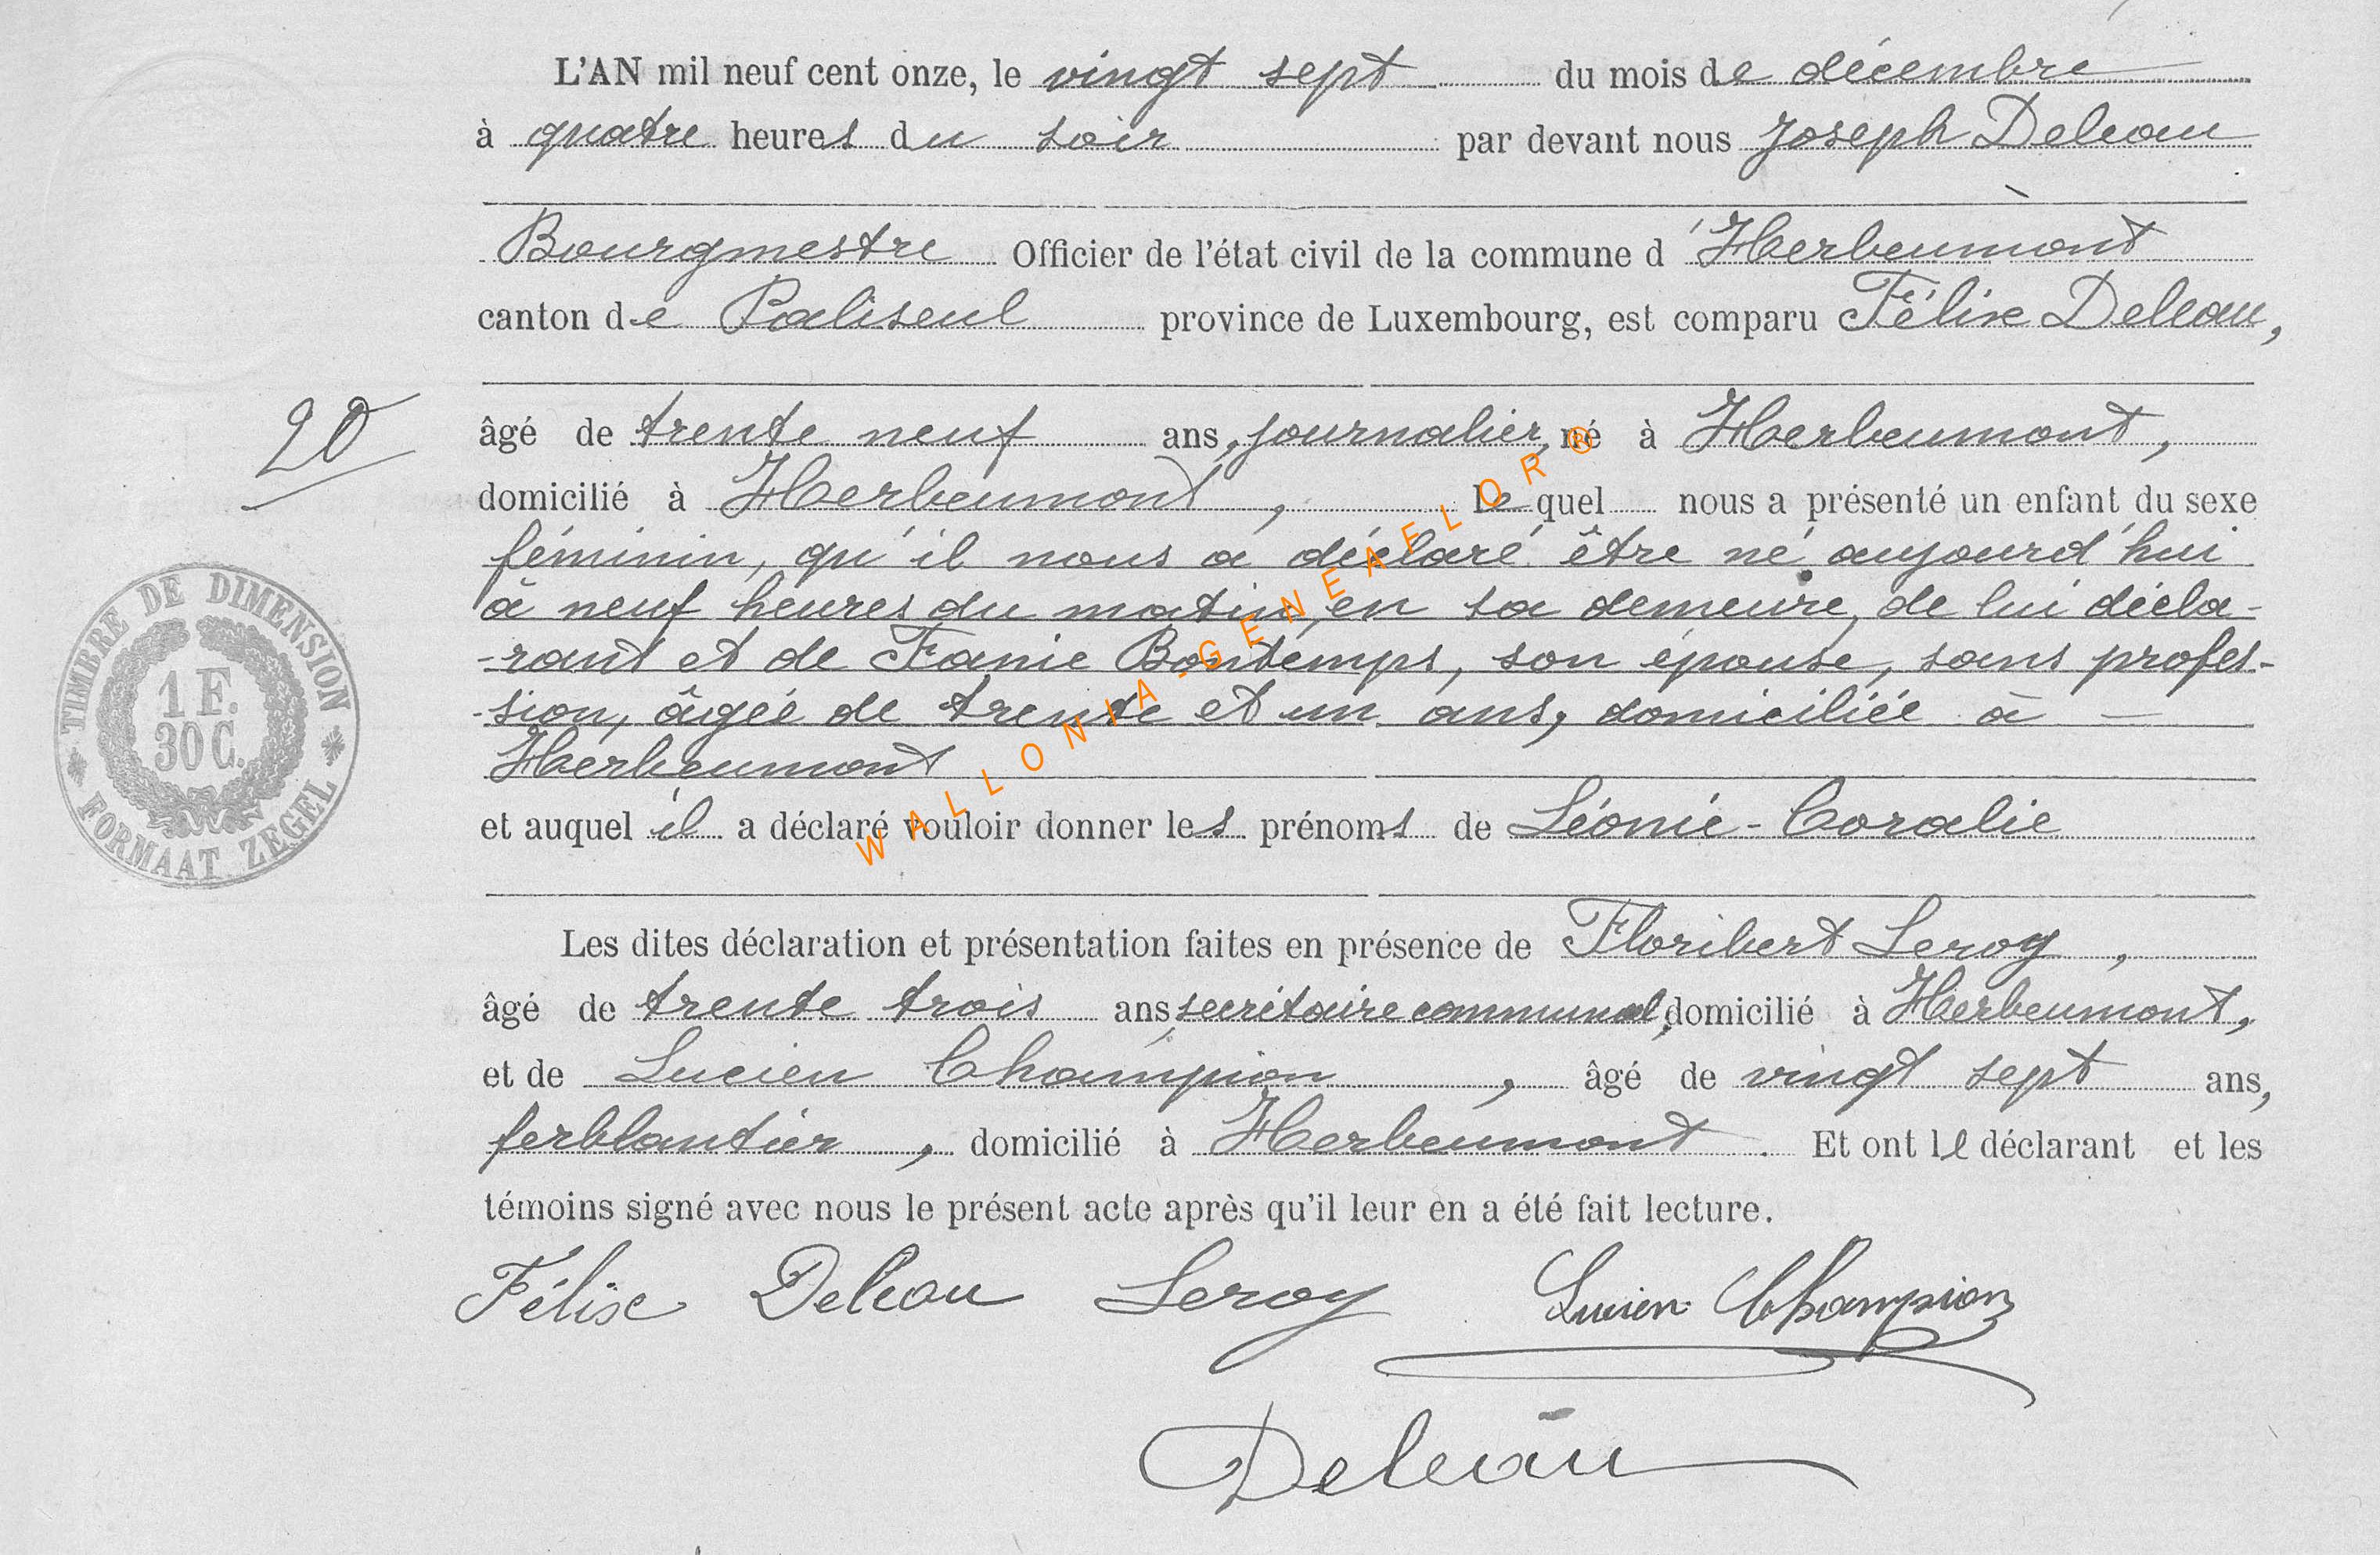 L'AN mil neuf cent onze, le vingt sept du mois de décembre
à quatre heures du soir par devant nous Joseph Deleau
Bourgmestre Officier de l'état civil de la commune d'Herbeumont
canton de Paliseul province de Luxembourg, est comparu Félix Deleau,
20
âgé de trente neuf ans, journalier, né à Herbeumont,
domicilié à Herbeumont, lequel nous a présenté un enfant du sexe
féminin, qu'il nous a déclaré être né aujourd'hui
à neuf heures du matin, en sa demeure, de lui décla-
-rant et de Fanie Bontemps, son épouse, sans profes-
-sion, âgée de trente et un ans, domiciliée à
Herbeumont
et auquel il a déclaré vouloir donner les prénoms de Léonie-Coralie
Les dites déclaration et présentation faites en présence de Floribert Leroy,
âgé de trente trois ans, secrétaire communal, domicilié à Herbeumont,
et de Lucien Champion, âgé de vingt sept ans,
ferblantier, domicilié à Herbeumont. Et ont le déclarant et les
témoins signé avec nous le présent acte après qu'il leur en a été fait lecture.
Félix Deleau Leroy Lucien Champion
Deleau
TIMBRE DE DIMENSION
1 F.
30 C.
FORMAAT ZEGEL
WALLONIA-GENEAFLOR®